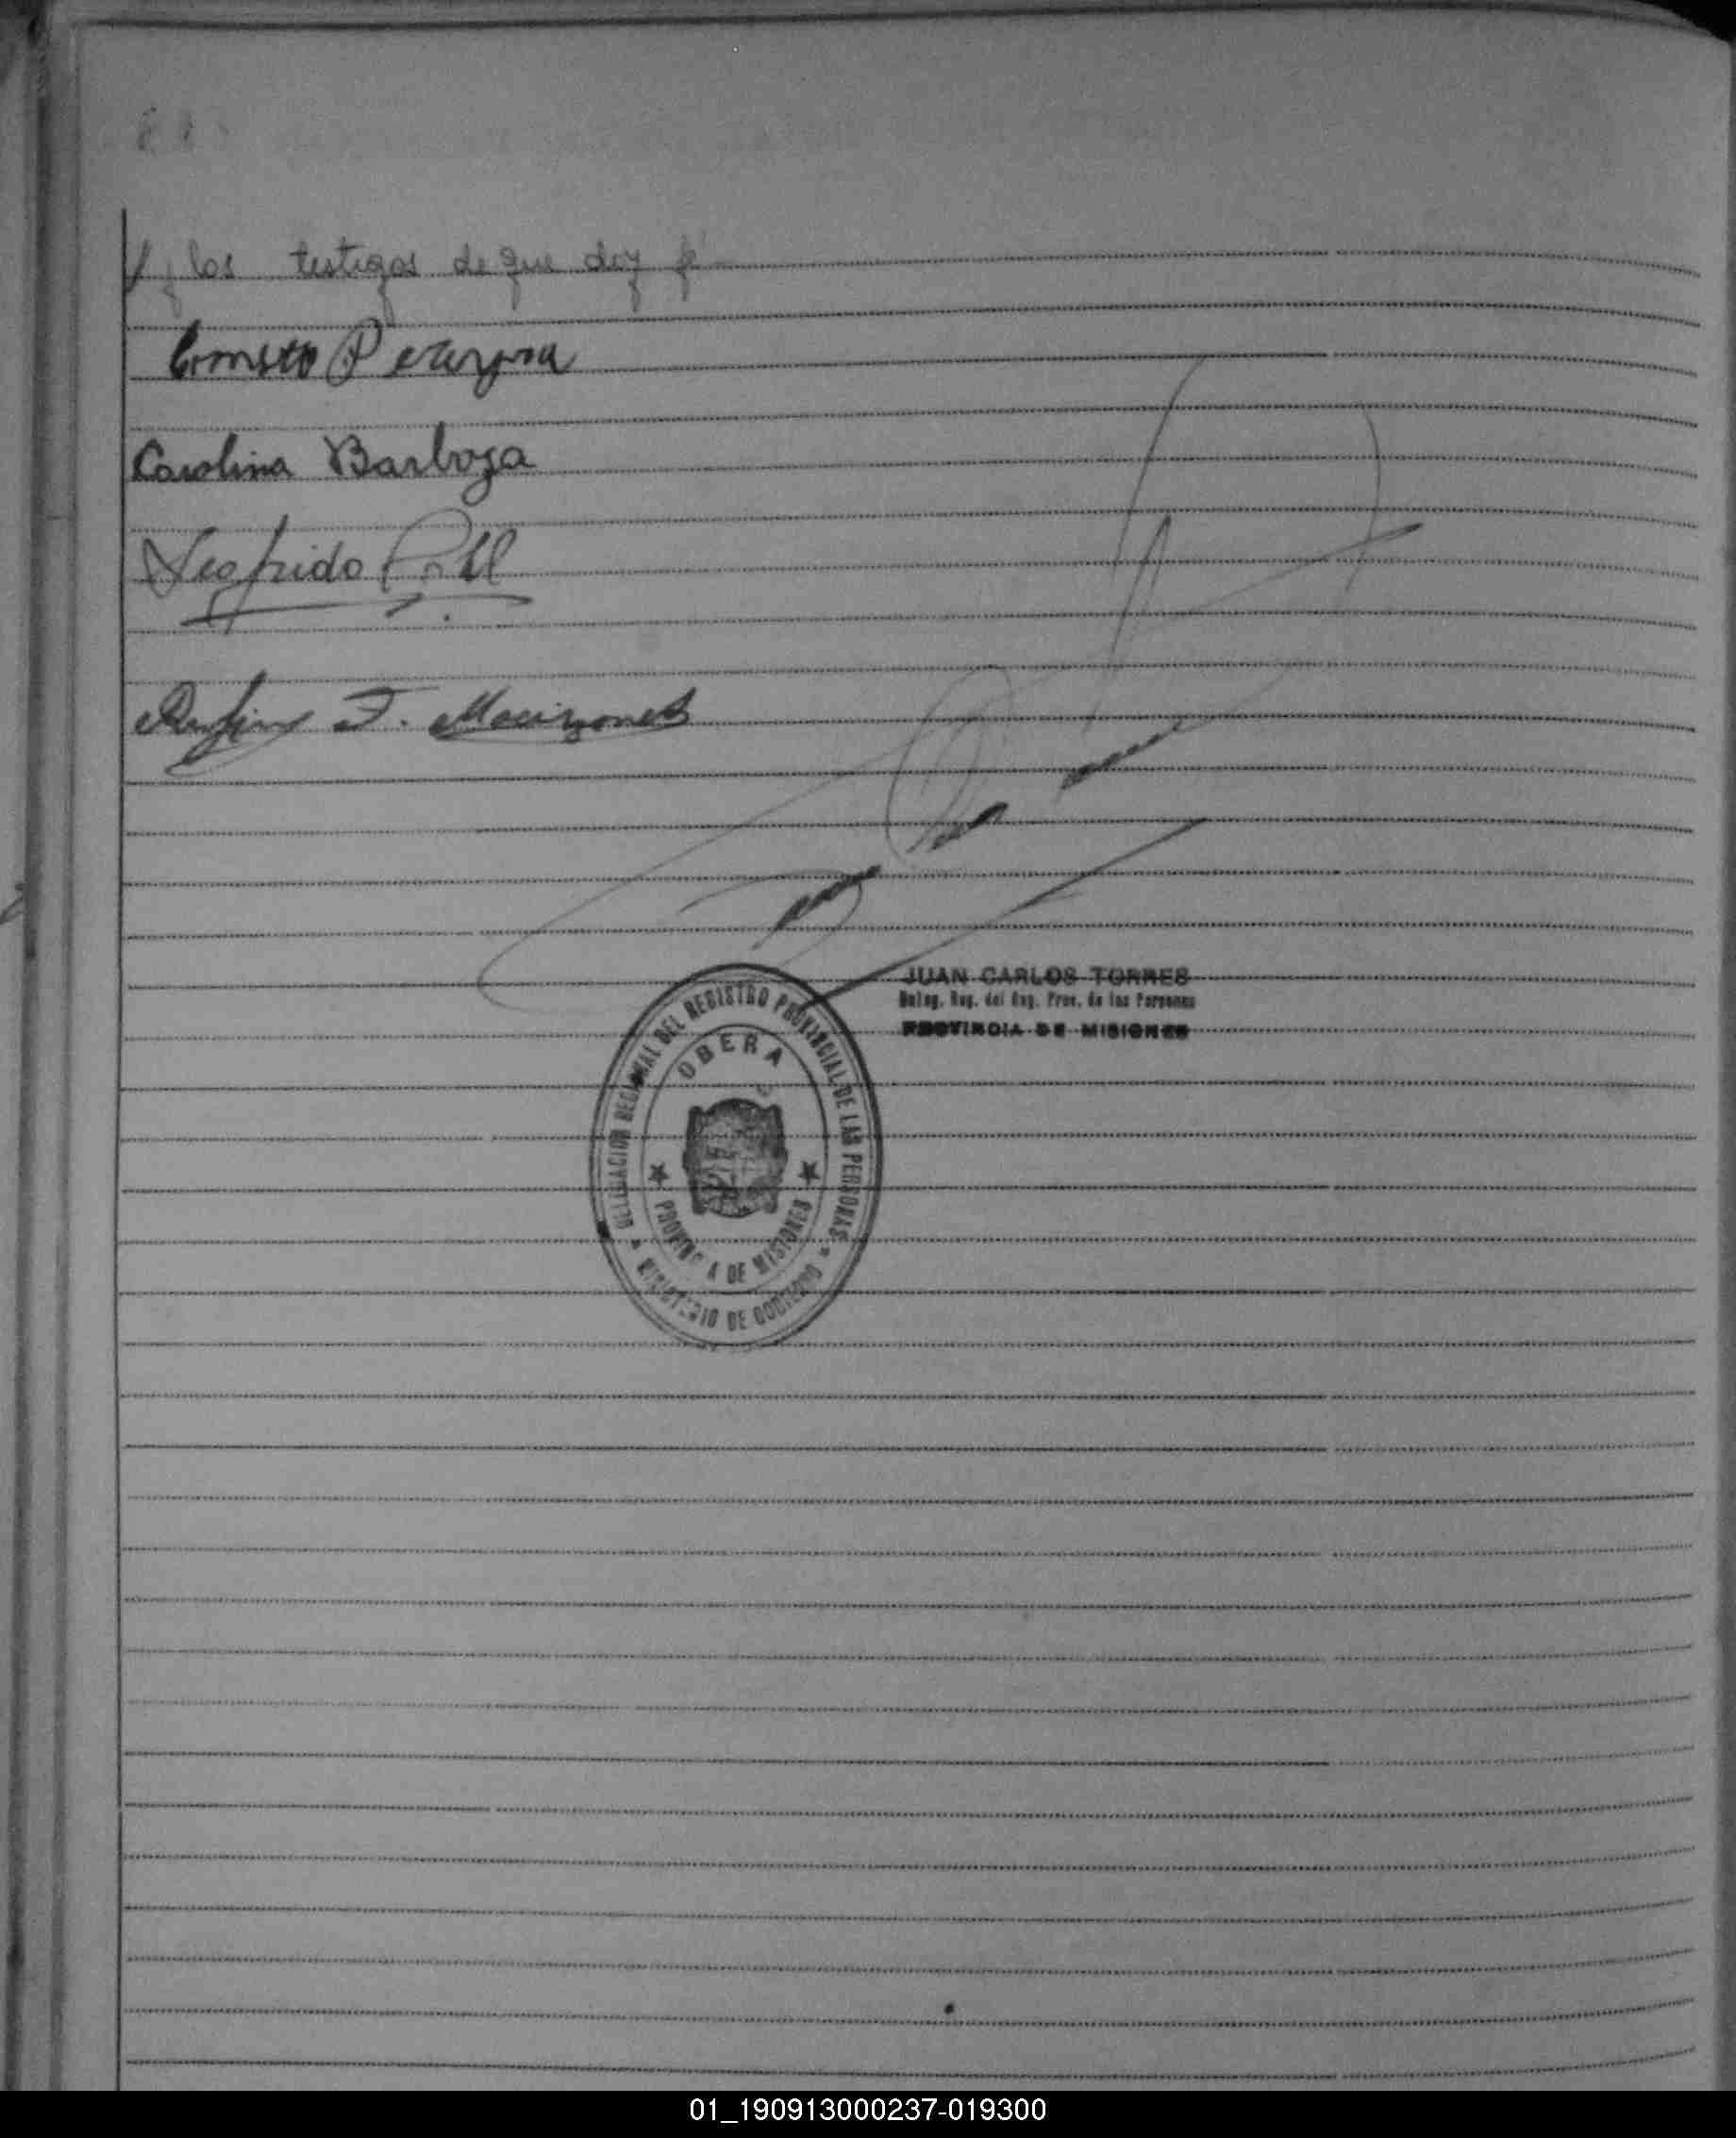 y los testigos de que doy fé
Ernesto Pereyra
Carolina Barboza
Rufino F.
JUAN CARLOS TORRES
Deleg. Reg. del Reg. Prov. de las Personas
PROVINCIA DE MISIONES
DELEGACION REGIONAL DEL REGISTRO PROVINCIAL DE LAS PERSONAS
OBERA
PROVINCIA DE MISIONES
MINISTERIO DE GOBIERNO
01_190913000237-019300